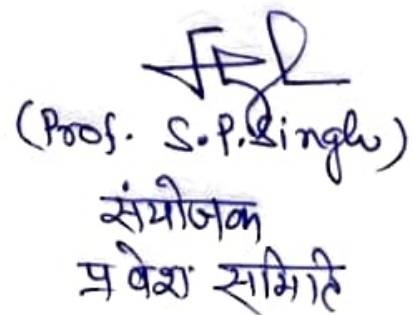 (Prof. S.P. Singh)
संयोजक
प्रवेश समिति